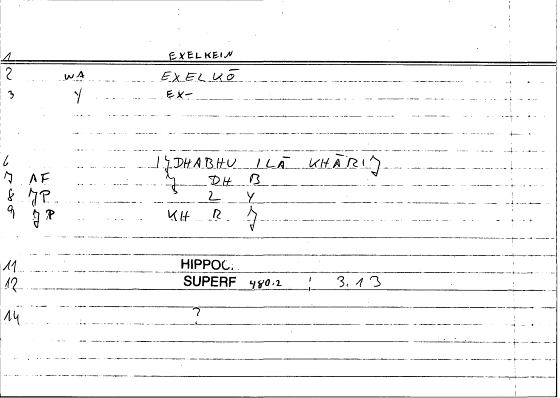 1 EXELKEIN
2 WA EXELKŌ
3 Y EX-
6 IJDHABHU ILĀ KHĀRIJ
7 AF J DH B
8 JP L Y
9 JP KH R J
11 HIPPOC.
12 SUPERF 480.2 ; 3.13
14 ?